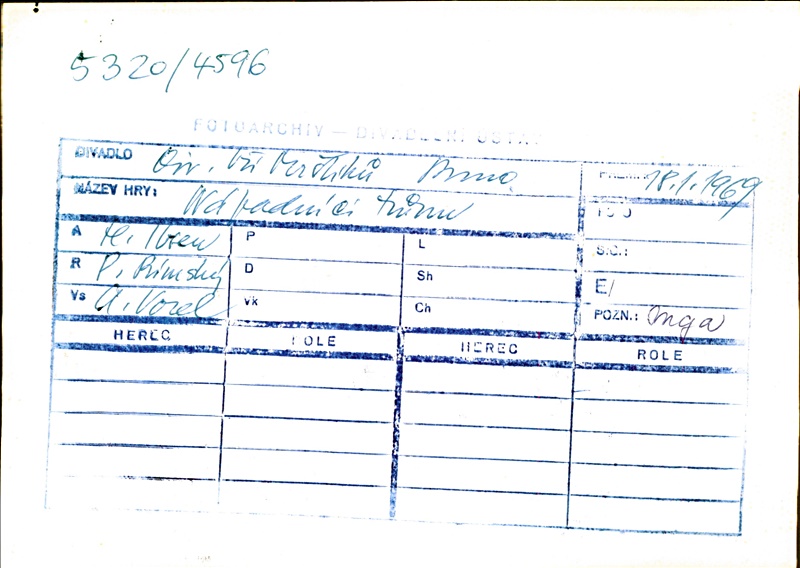 5320/4596
FOTOARCHIV – DIVADELNÍ ÚSTAV
DIVADLO Div. bří Mrštíků Brno PREM.: 18.1.1969
NÁZEV HRY: Nápadníci trůnu
A H. Ibsen P L S.Č.:
R P. Rímský D Sh E/
Vs A. Vorel vk Ch POZN.: Inga
HEREC ROLE HEREC ROLE